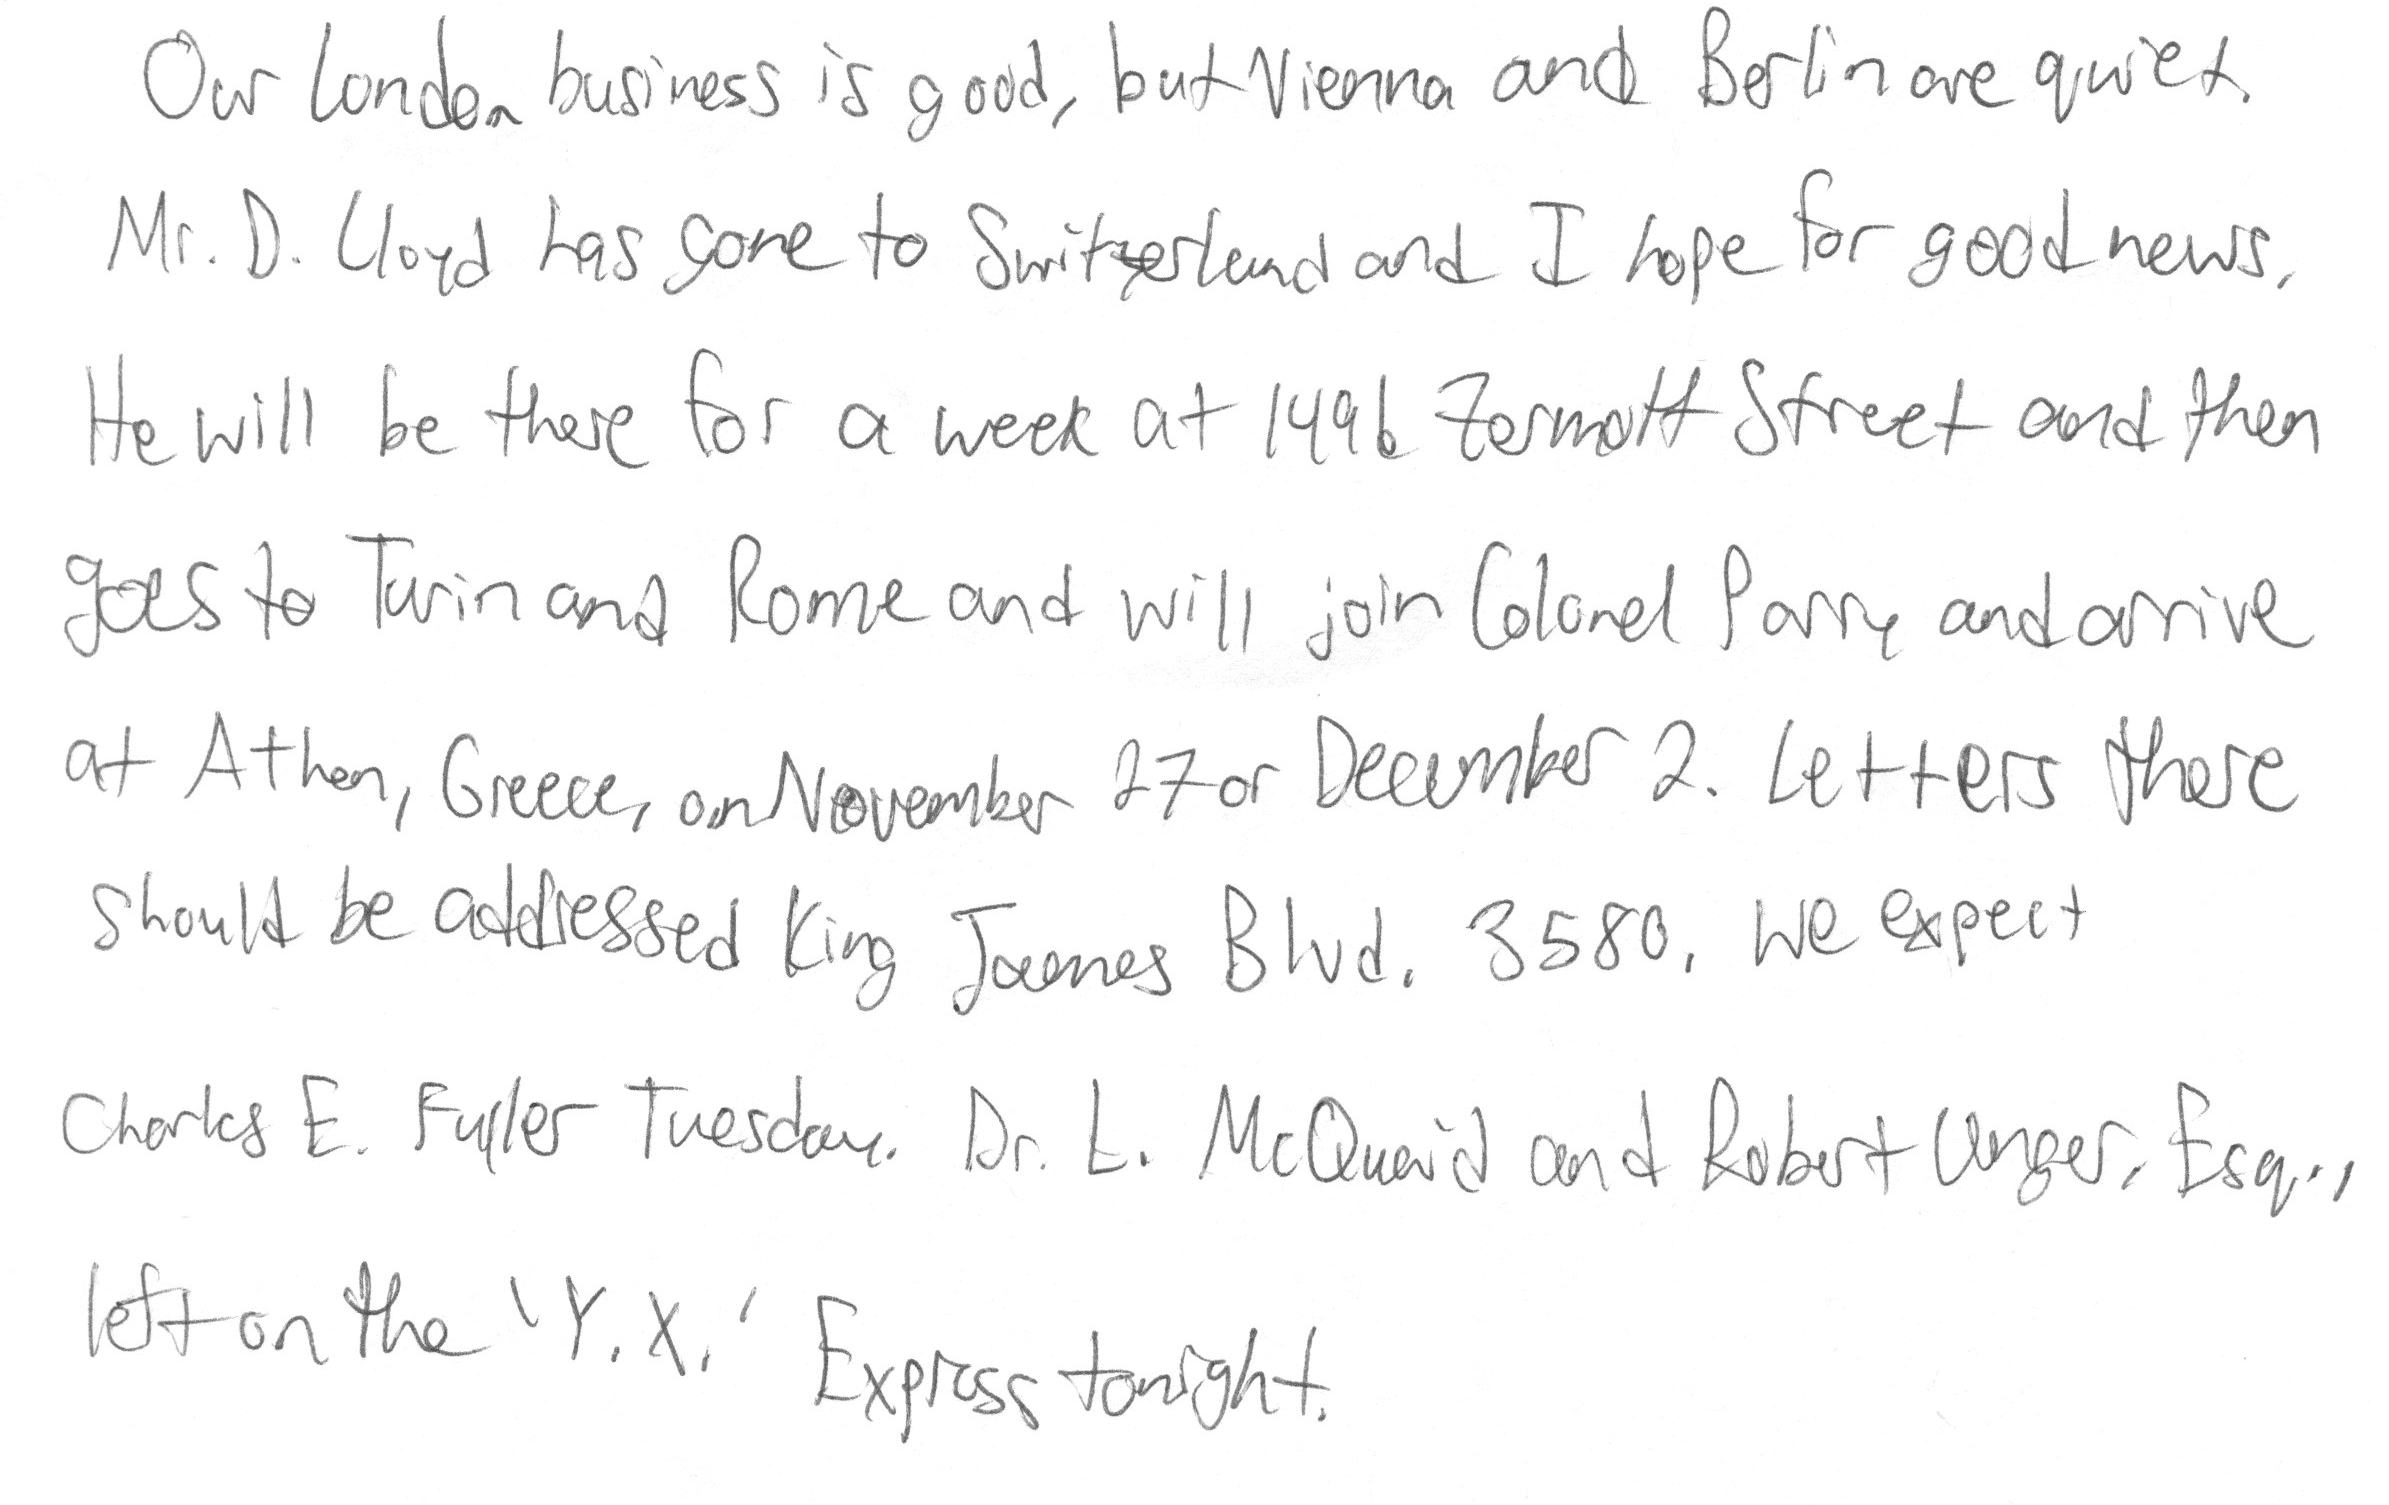 Our London business is good, but Vienna and Berlin are quiet.
Mr. D. Lloyd has gone to Switzerland and I hope for good news.
He will be there for a week at 1496 Zermott Street and then
goes to Turin and Rome and will join Colonel Parry and arrive
at Athen, Greece, on November 27 or December 2. Letters there
should be addressed King James Blvd. 3580. We expect
Charles E. Fuller Tuesday. Dr. L. McQuaid and Robert Unger, Esq.,
left on the 'Y.X.' Express tonight.